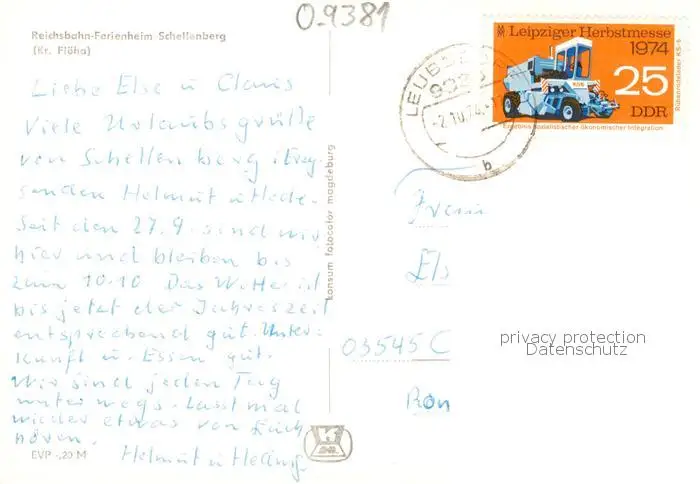 0.9381
Reichsbahn-Ferienheim Schellenberg
(Kr. Flöha)
Liebe Else u Claus
Viele Urlaubsgrüße
von Schellenberg i Erzg.
senden Helmut u Hede.
Seit den 27.9. sind wir
hier und bleiben bis
zum 10.10 Das Wetter ist
bis jetzt der Jahreszeit
entsprechend gut. Unter-
kunft u. Essen gut.
Wir sind jeden Tag
unterwegs. Lasst mal
wieder etwas von Euch
hören.
Helmut u
EVP -,20 M
konsum fotocolor magdeburg
Leipziger Herbstmesse
1974
25
DDR
Rübenrodelader KS-6
Ergebnis sozialistischer ökonomischer Integration
-2.10.74.
b
Frau
Els
03545 C
Ron
privacy protection
Datenschutz